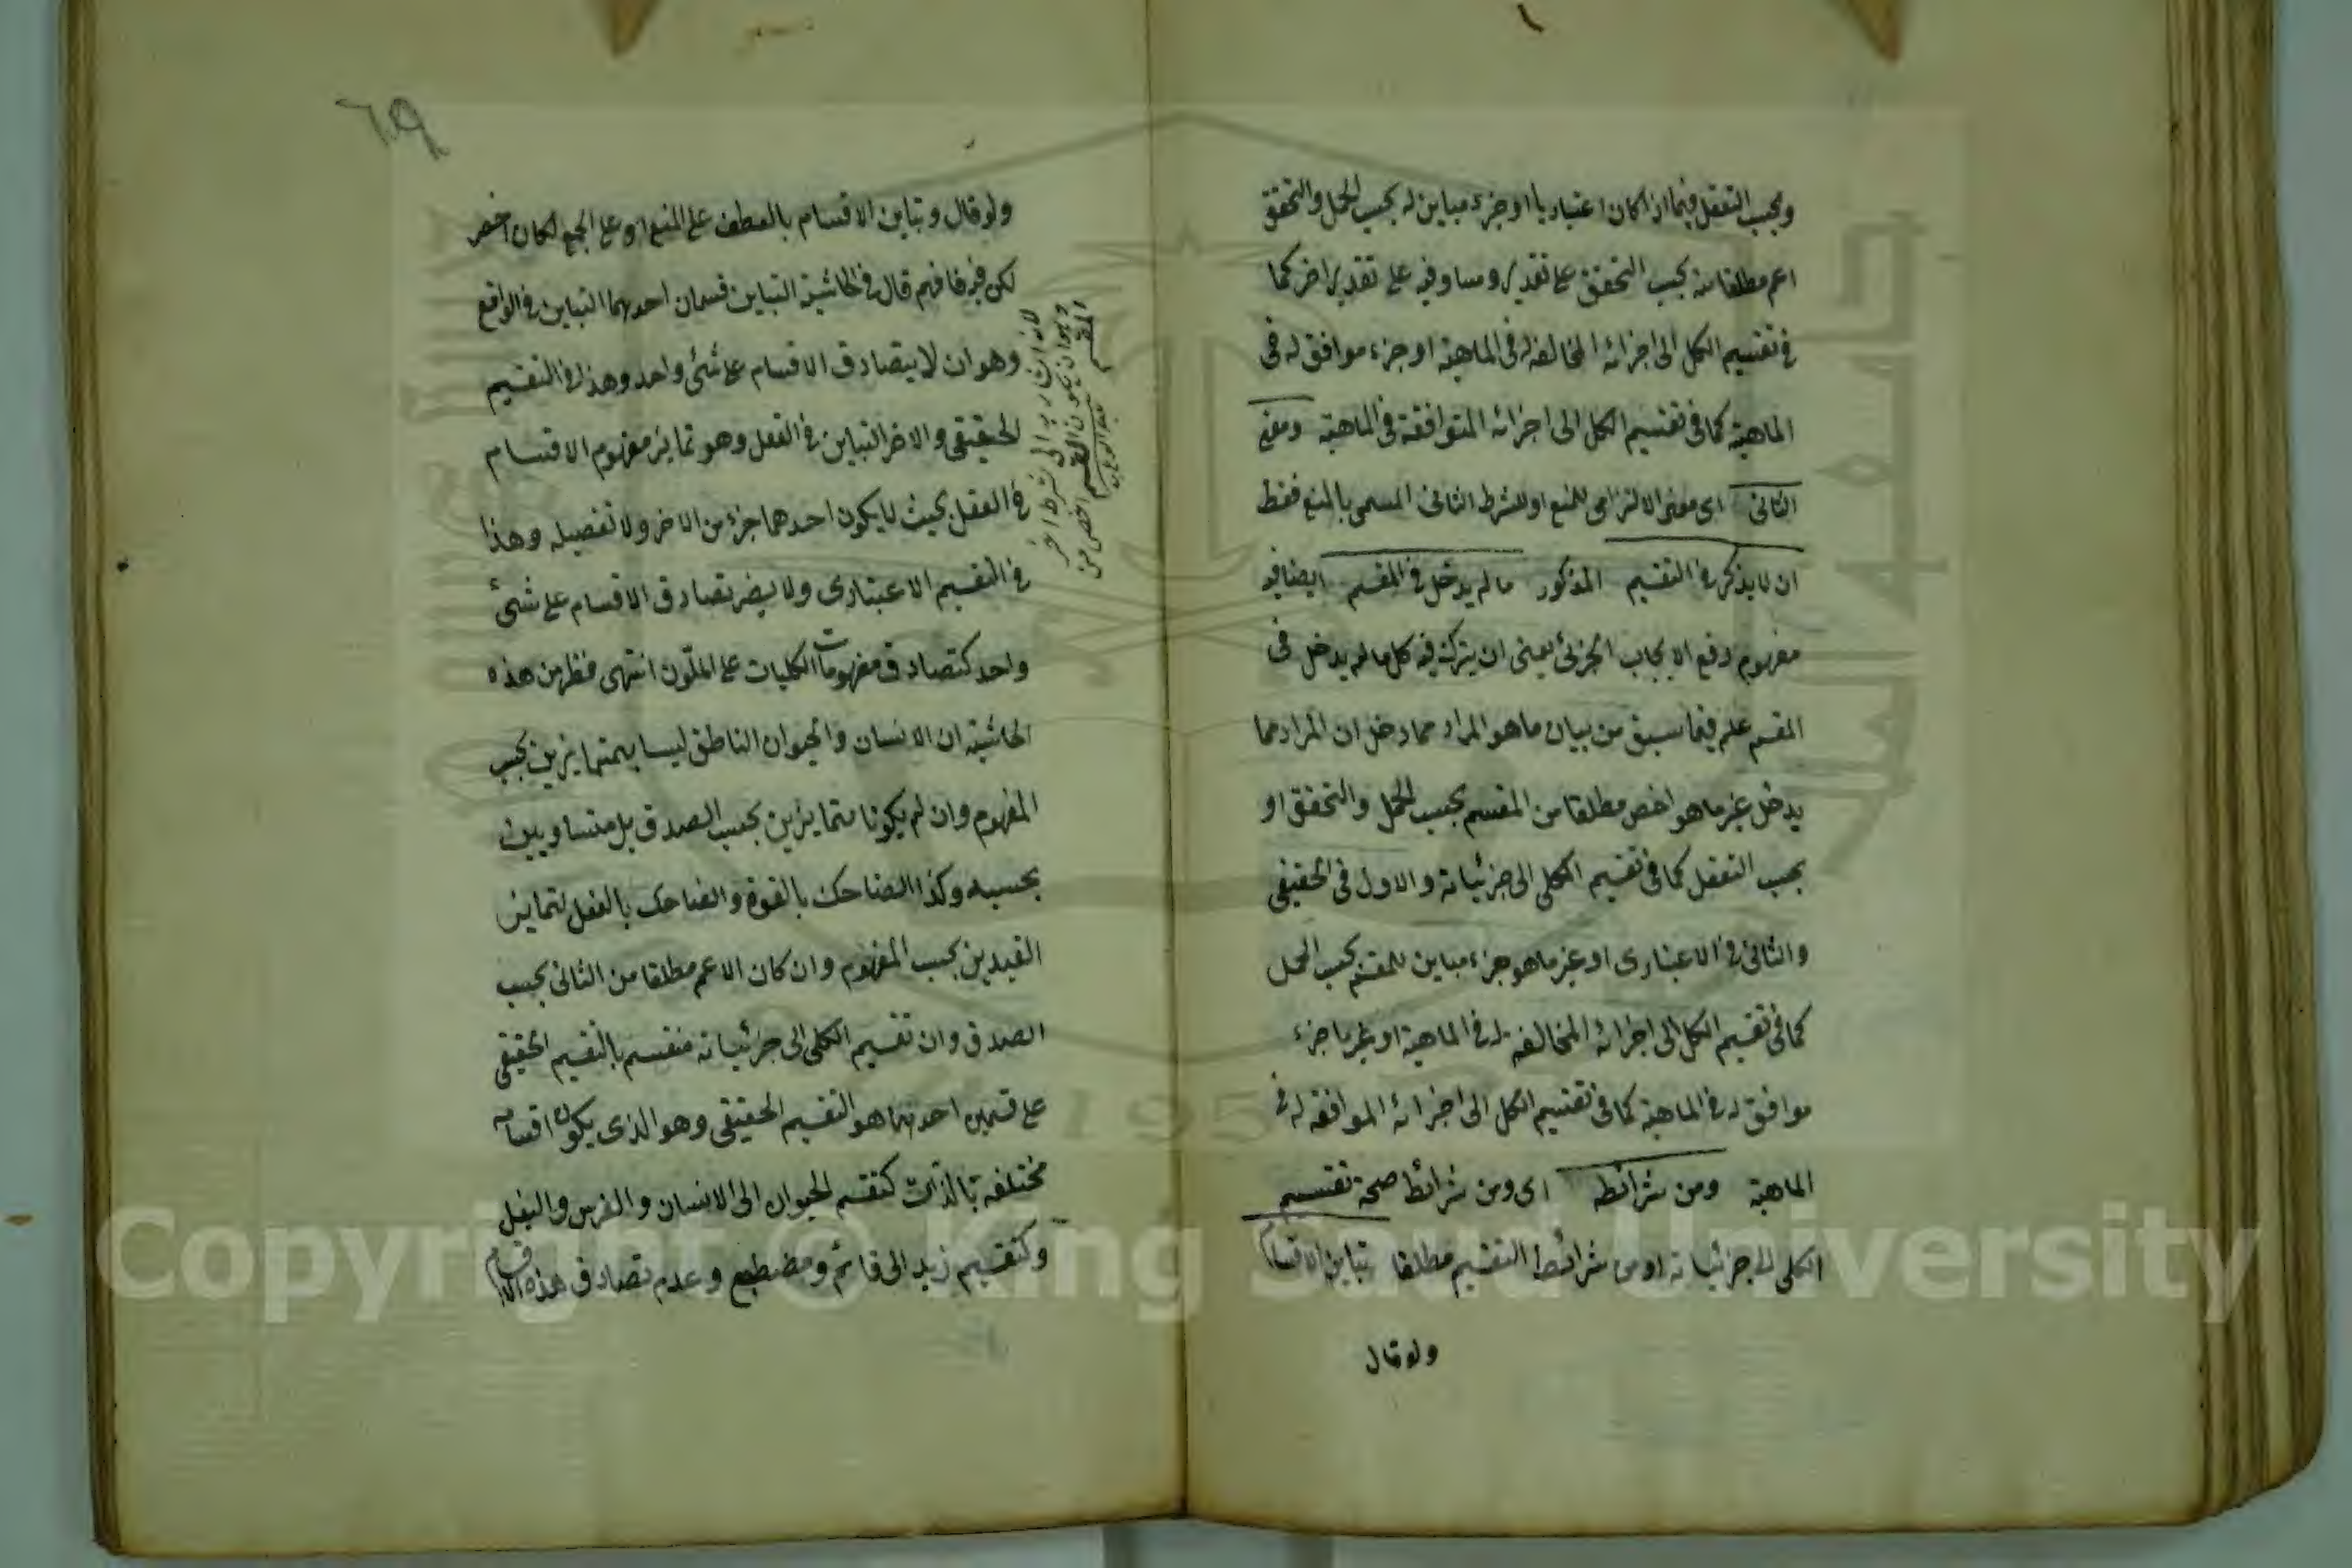 وبحسب التعقل فيما اذا كان اعتباريا او جزء مباين له بحسب الحمل والتحقق
اعم مطلقا منه بحسب التحقق على تقدير ومساو فيه على تقدير اخر كما
فى تقسيم الكل الى اجزائه المخالفة له فى الماهية او جزء موافق له فى
الماهية كما فى تقسيم الكل الى اجزائه المتوافقة فى الماهية ومعنى
الثانى اى معنى الالتزامى للمنع او للشرط الثانى المسمى بالمنع فقط
ان لا يذكر فى التقسيم المذكور ما لم يدخل فى المقسم ايضا فيه
مفهوم رفع الايجاب الجزئى يعنى ان يترك فيه كل ما لم يدخل فى
المقسم علم فيما سبق من بيان ما هو المراد مما دخل ان المراد مما
يدخل غير ما هو اخص مطلقا من المقسم بحسب الحمل والتحقق او
بحسب التعقل كما فى تقسيم الكلى الى جزئياته والاول فى الحقيقى
والثانى فى الاعتبارى او غير ما هو جزء مباين للمقسم بحسب الحمل
كما فى تقسيم الكل الى اجزائه المخالفة له فى الماهية او غير ما جزء
موافق له فى الماهية كما فى تقسيم الكل الى اجزائه الموافقة له فى
الماهية ومن شرائطه اى ومن شرائط صحة تقسيم
الكلى الى جزئياته او من شرائط التقسيم مطلقا تباين الاقسام
ولو قال
٦٩
ولو قال وتباين الاقسام بالعطف على المنع او على الجمع لكان اخصر
لكن فيه فافهم قال فى الحاشية التباين قسمان احدهما التباين فى الواقع
وهو ان لا يتصادق الاقسام على شئ واحد وهذا فى التقسيم
الحقيقى والاخر التباين فى العقل وهو تمايز مفهوم الاقسام
فى العقل بحيث لا يكون احدهما جزء من الاخر ولا تفصيله وهذا
فى التقسيم الاعتبارى ولا يضر تصادق الاقسام على شئ
واحد كتصادق مفهومات الكليات على الملون انتهى فظهر من هذه
الحاشية ان الانسان والحيوان الناطق ليسا بمتمايزين بحسب
المفهوم وان لم يكونا متمايزين بحسب الصدق بل متساويين
بحسبه وكذا الضاحك بالقوة والضاحك بالفعل لتمايز
القيدين بحسب المفهوم وان كان الاعم مطلقا من الثانى بحسب
الصدق وان تقسيم الكلى الى جزئياته منقسم بالتقسيم الحقيقى
على قسمين احدهما هو التقسيم الحقيقى وهو الذى يكون اقسامه
مختلفة بالذات كتقسيم الحيوان الى الانسان والفرس والبغل
وكتقسيم زيد الى قائم ومضطجع وعدم تصادق هذه الاقسام
لانه اشار به الى شرط اخر
وهو ان يكون القسم اخص من
المقسم